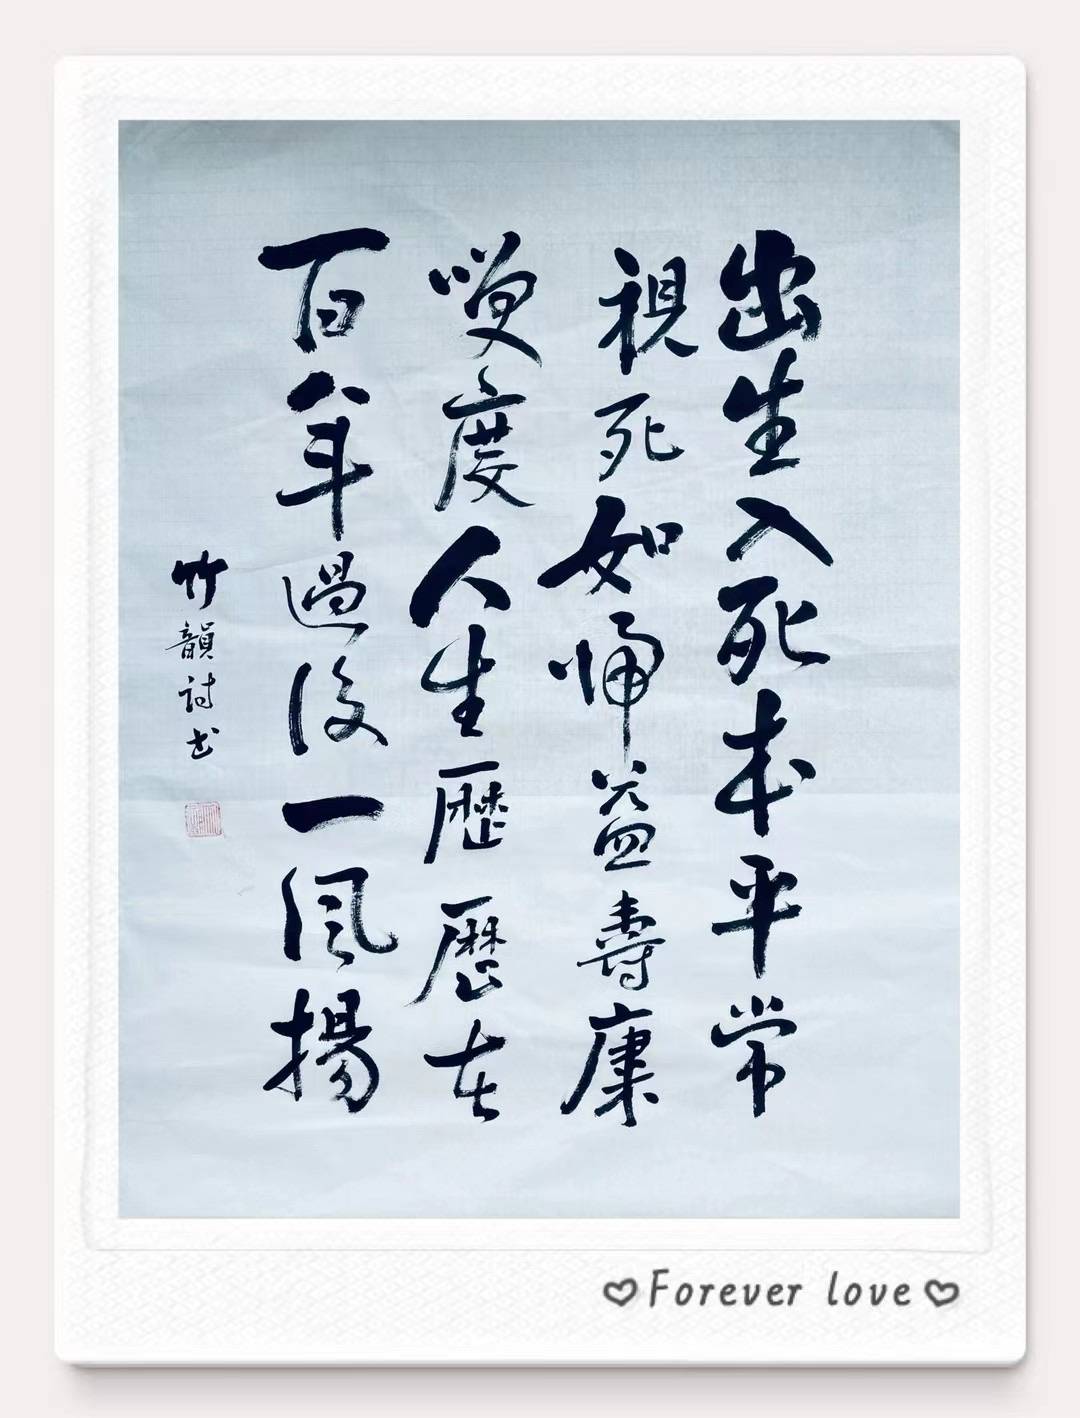 出生入死本平常
視死如帰益壽康
度人生歷歷在
百年過後一風揚
竹韻詩书
Forever love